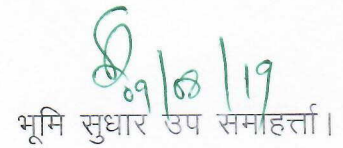 09/08/19
भूमि सुधार उप समाहर्त्ता।